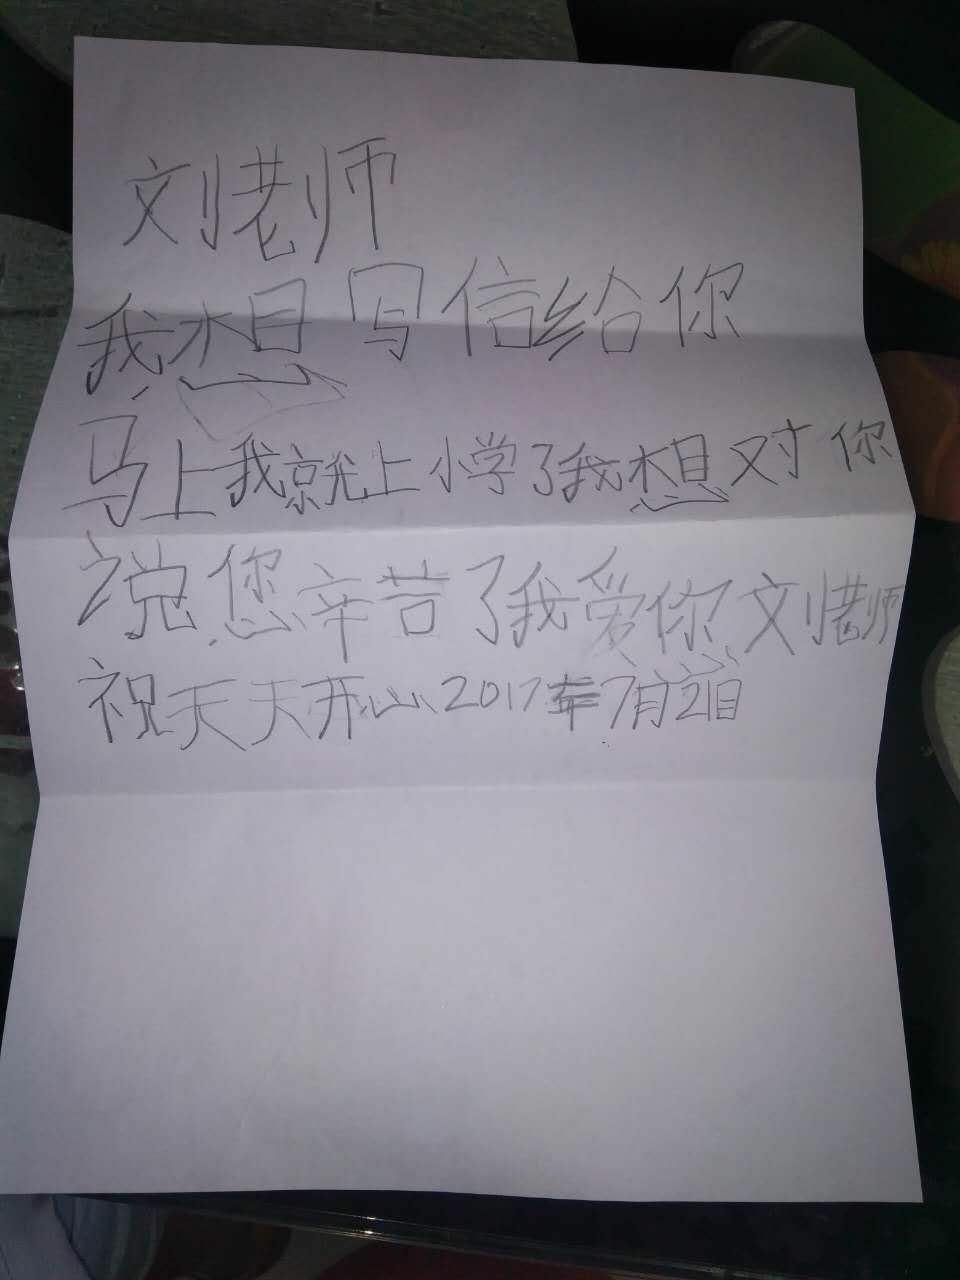 刘老师
我想写信给你
马上我就上小学了我想对你
说您辛苦了我爱你刘老师
祝天天开心2017年7月21日